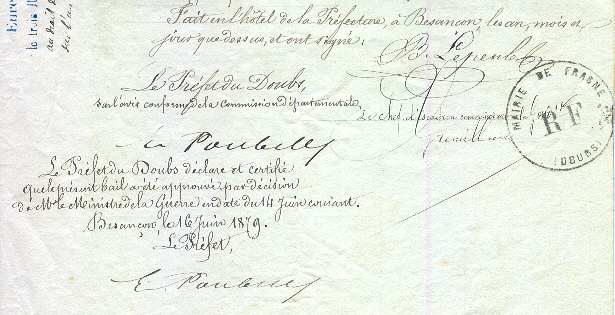 Fait en l'hôtel de la Préfecture, à Besançon, les an, mois et
jour que dessus, et ont signé.
Le Préfet du Doubs,
sur l'avis conforme de la Commission départementale,
E Poubelle
Le Préfet du Doubs déclare et certifie
que le présent bail a été approuvé par décision
de Mr le Ministre de la Guerre en date du 14 Juin courant.
Besançon, le 16 Juin 1879.
Le Préfet,
E Poubelle
MAIRIE DE FRASNE
RF
(DOUBS)